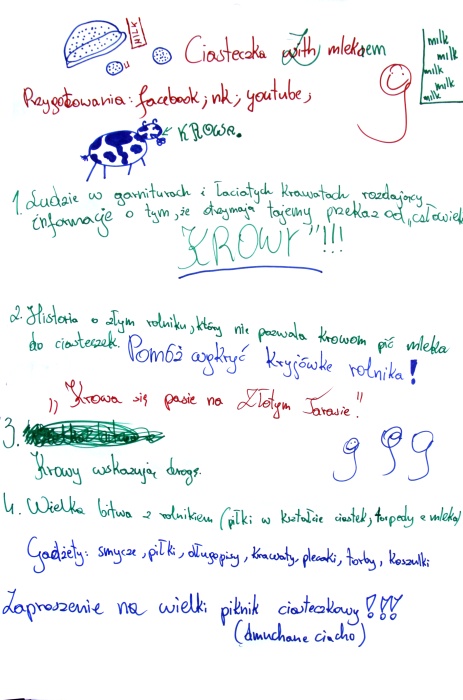 MILK
Ciasteczka with mlekiem
milk
milk
milk
milk
milk
Przygotowania: facebook; nk; youtube;
KROWA.
1. Ludzie w garniturach i łaciatych krawatach rozdający
informacje o tym, że otrzymają tajemy przekaz od „człowieka
KROWY"!!!
2. Historia o złym rolniku, który nie pozwala krowom pić mleka
do ciasteczek. Pomóż wykryć kryjówkę rolnika!
„Krowa się pasie na Złotym Tarasie."
3.
Krowy wskazują drogę.
4. Wielka bitwa z rolnikiem (piłki w kształcie ciastek, torpedy z mleka)
Gadżety: smycze, piłki, długopisy, krawaty, plecaki, torby, koszulki
Zaproszenie na wielki piknik ciasteczkowy!!!
(dmuchane ciacho)